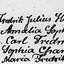 Fredrik Julius H
Amalia Soph
Carl Fredri
Sophia Char
Maria Fredrik